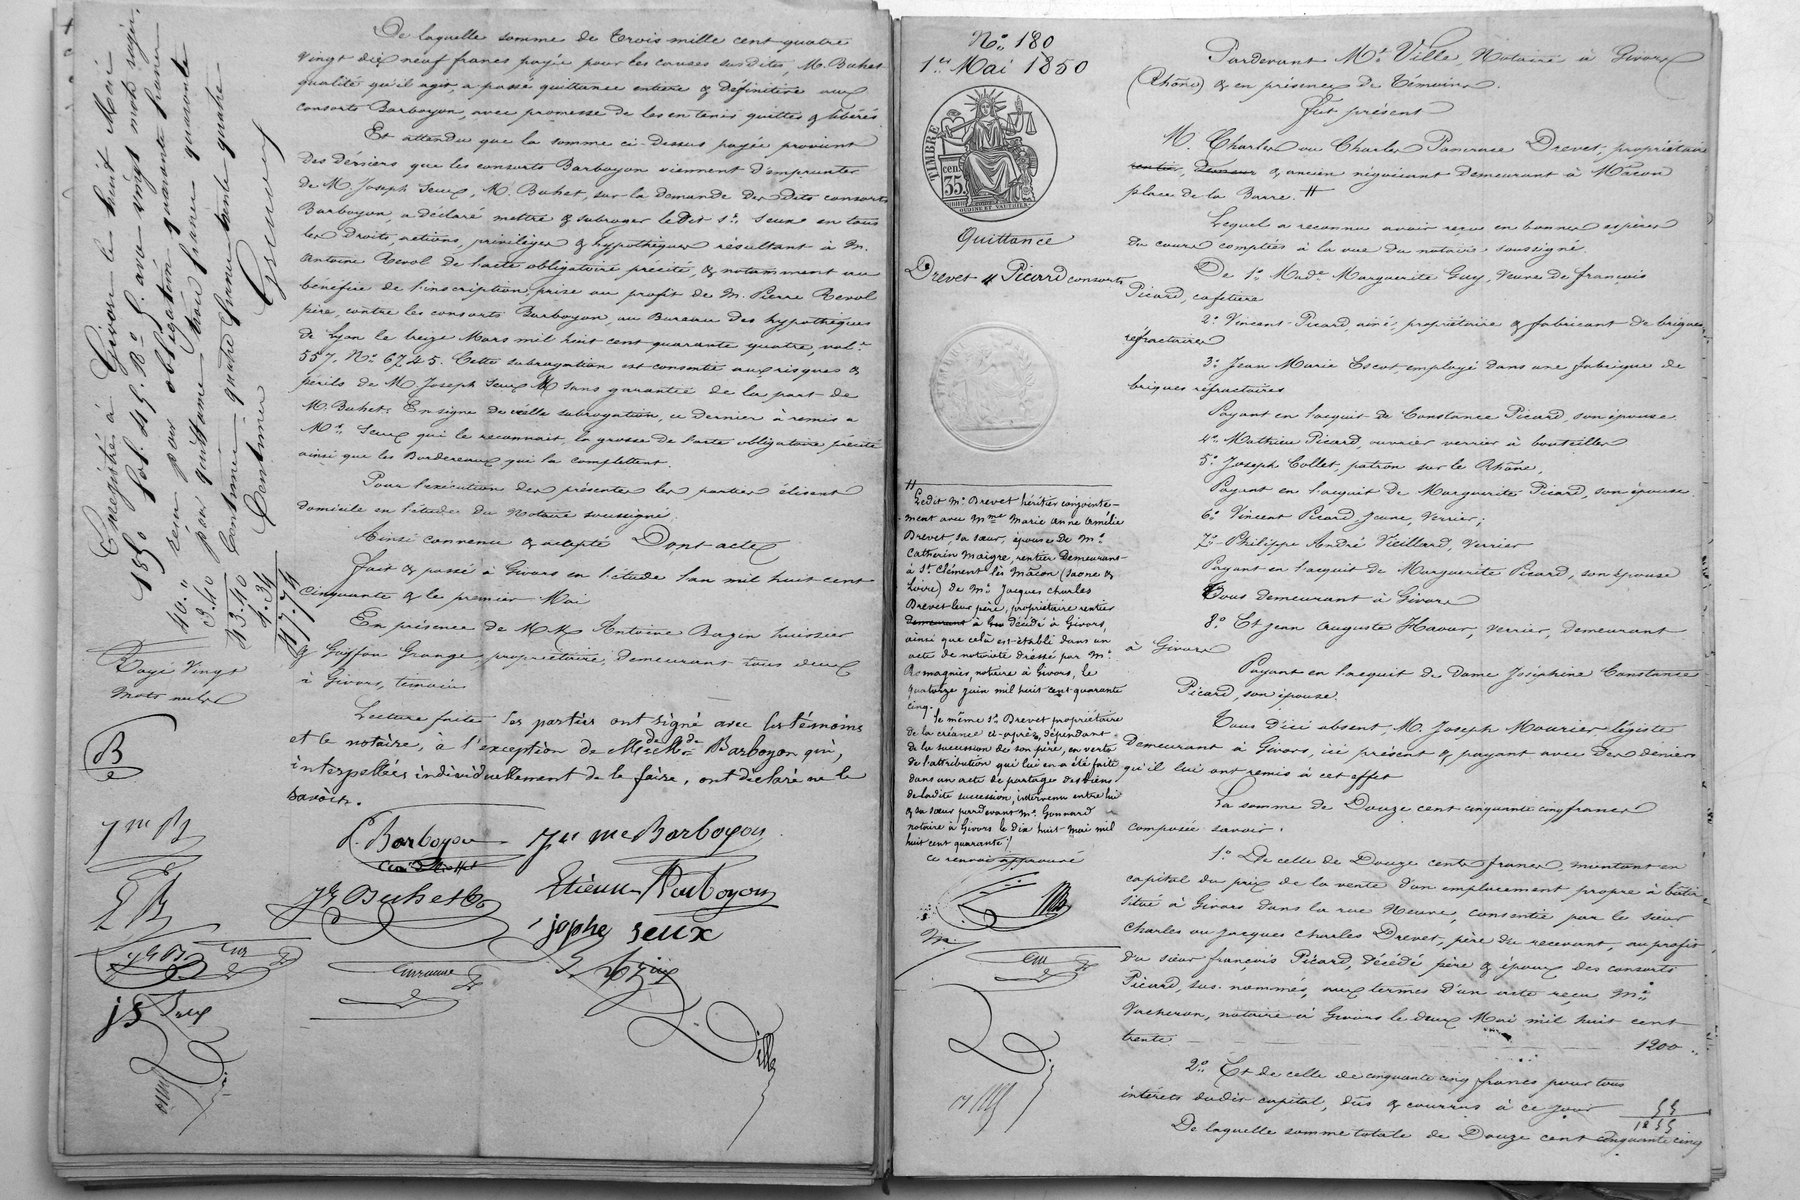 De laquelle somme de Trois mille cent quatre
vingt dix neuf francs payée pour les causes susdites, M. Buhet
qualité qu'il agit, a passé quittance entière & définitive aux
consorts Barboyon, avec promesse de les en tenir quittes & libérés
Et attendu que la somme ci-dessus payée provient
des déniers que les consorts Barboyon viennent d'emprunter
de M. Joseph Seux, M. Buhet, sur la demande des dits consorts
Barboyon, a déclaré mettre & subroger le dit Sr. Seux en tous
les droits, actions, privilèges & hypothèques résultant à M.
Antoine Revol de l'acte obligatoire précité, & notamment au
bénéfice de l'inscription prise au profit de M. Pierre Revol
père, contre les consorts Barboyon, au Bureau des hypothèques
de Lyon le treize Mars mil huit cent quarante quatre, vol.
557, No. 6745. Cette subrogation est consentie aux risques &
périls de M. Joseph Seux & sans garantie de la part de
M. Buhet. En signe de cette subrogation, ce dernier a remis à
Mr. Seux qui le reconnait, la grosse de l'acte obligatoire précité
ainsi que les Bordereaux qui la complettent.
Pour l'exécution des présentes les parties élisent
domicile en l'étude du Notaire soussigné
Ainsi convenu & accepté Dont acte
Fait & passé à Givors en l'étude l'an mil huit cent
cinquante & le premier Mai
En présence de M.M. Antoine Bazin huissier
& Goiffon Grange, propriétaire, demeurant tous deux
à Givors, témoins
Lecture faite les parties ont signé avec les témoins
et le notaire, à l'exception de M. de Mde Barboyon qui,
interpellées individuellement de le faire, ont déclaré ne le
savoir.
Barboyon Jn me Barboyon
Buhet Etienne Barboyon
jophe seux
Ville
Enregistré à Givors le huit Mai
1850 fol. 45 Ro. avec vingt mots rayés
reçu pour obligation quarante francs
pour quittance trois francs quarante
Centimes quatre francs trente quatre
Centimes
40 "
3.40
43.40
4.34
47.74
Rayé Vingt
Mots nuls
B
Jn B
E B
j S Seux
No. 180
1er. Mai 1850
TIMBRE
35 cen
OUDINE ET VAUTHIER
Quittance
Drevet // Picard consorts
Ledit Mr. Drevet héritier conjointe-
ment avec Mme Marie Anne Amélie
Drevet, sa sœur, épouse de Mr.
Catherin Maigre, rentier demeurant
à St Clément lès Mâcon (Saone &
Loire) de Mr. Jacques Charles
Drevet leur père, propriétaire rentier
demeurant à décédé à Givors,
ainsi que celà est établi dans un
acte de notoriété dressé par Mr.
Romagnis, notaire à Givors, le
quatorze juin mil huit cent quarante
cinq.
le même Sr. Drevet propriétaire
de la créance ci-après, dépendant
de la succession de son père, en vertu
de l'attribution qui lui en a été faite
dans un acte de partage des biens
de ladite succession, intervenu entre lui
& sa sœur pardevant Mr. Gonnard
notaire à Givors le dix huit mai mil
huit cent quarante /
Ce renvoi approuvé
Pardevant Mr. Ville Notaire à Givors
(Rhône) & en présence de Témoins.
Fut présent
M. Charles ou Charles Pancrace Drevet, propriétaire
rentier, demeur & ancien négociant demeurant à Macon
place de la Barre. //
Lequel a reconnu avoir reçu en bonnes espèces
du cours comptées à la vue du notaire soussigné
De 1o. Made. Marguerite Guy, veuve de françois
Picard, cafetière
2o. Vincent Picard, ainé, propriétaire & fabricant de briques
réfractaires
3o. Jean Marie Escot employé dans une fabrique de
briques réfractaires
Payant en l'acquit de Constance Picard, son épouse
4o. Mathieu Picard, ouvrier verrier à bouteilles
5o. Joseph Collet, patron sur le Rhône,
Payant en l'acquit de Marguerite Picard, son épouse
6o. Vincent Picard Jeune, verrier;
7o. Philippe André Vieillard, verrier
Payant en l'acquit de Marguerite Picard, son épouse
Tous demeurant à Givors
8o. Et Jean Auguste Havour, verrier, demeurant
à Givors
Payant en l'acquit de Dame Joséphine Constance
Picard, son épouse.
Tous d'ici absent, M. Joseph Mourier légiste
demeurant à Givors, ici présent & payant avec des deniers
qu'il lui ont remis à cet effet
La somme de Douze cent cinquante cinq francs
composée savoir:
1o. De celle de Douze cents francs, montant en
capital du prix de la vente d'un emplacement propre à bâtir
situé à Givors dans la rue Neuve, consentie par le sieur
Charles ou Jacques Charles Drevet, père du recevant, au profit
du sieur françois Picard, décédé père & époux des consorts
Picard, sus-nommés, aux termes d'un acte reçu Me.
Vacheron, notaire à Givors le deux Mai mil huit cent
trente 1200 "
2o. Et de celle de cinquante cinq francs pour tous
intérêts dudit capital, dûs & courrus à ce jour 55
1255
De laquelle somme totale de Douze cent cinquante cinq